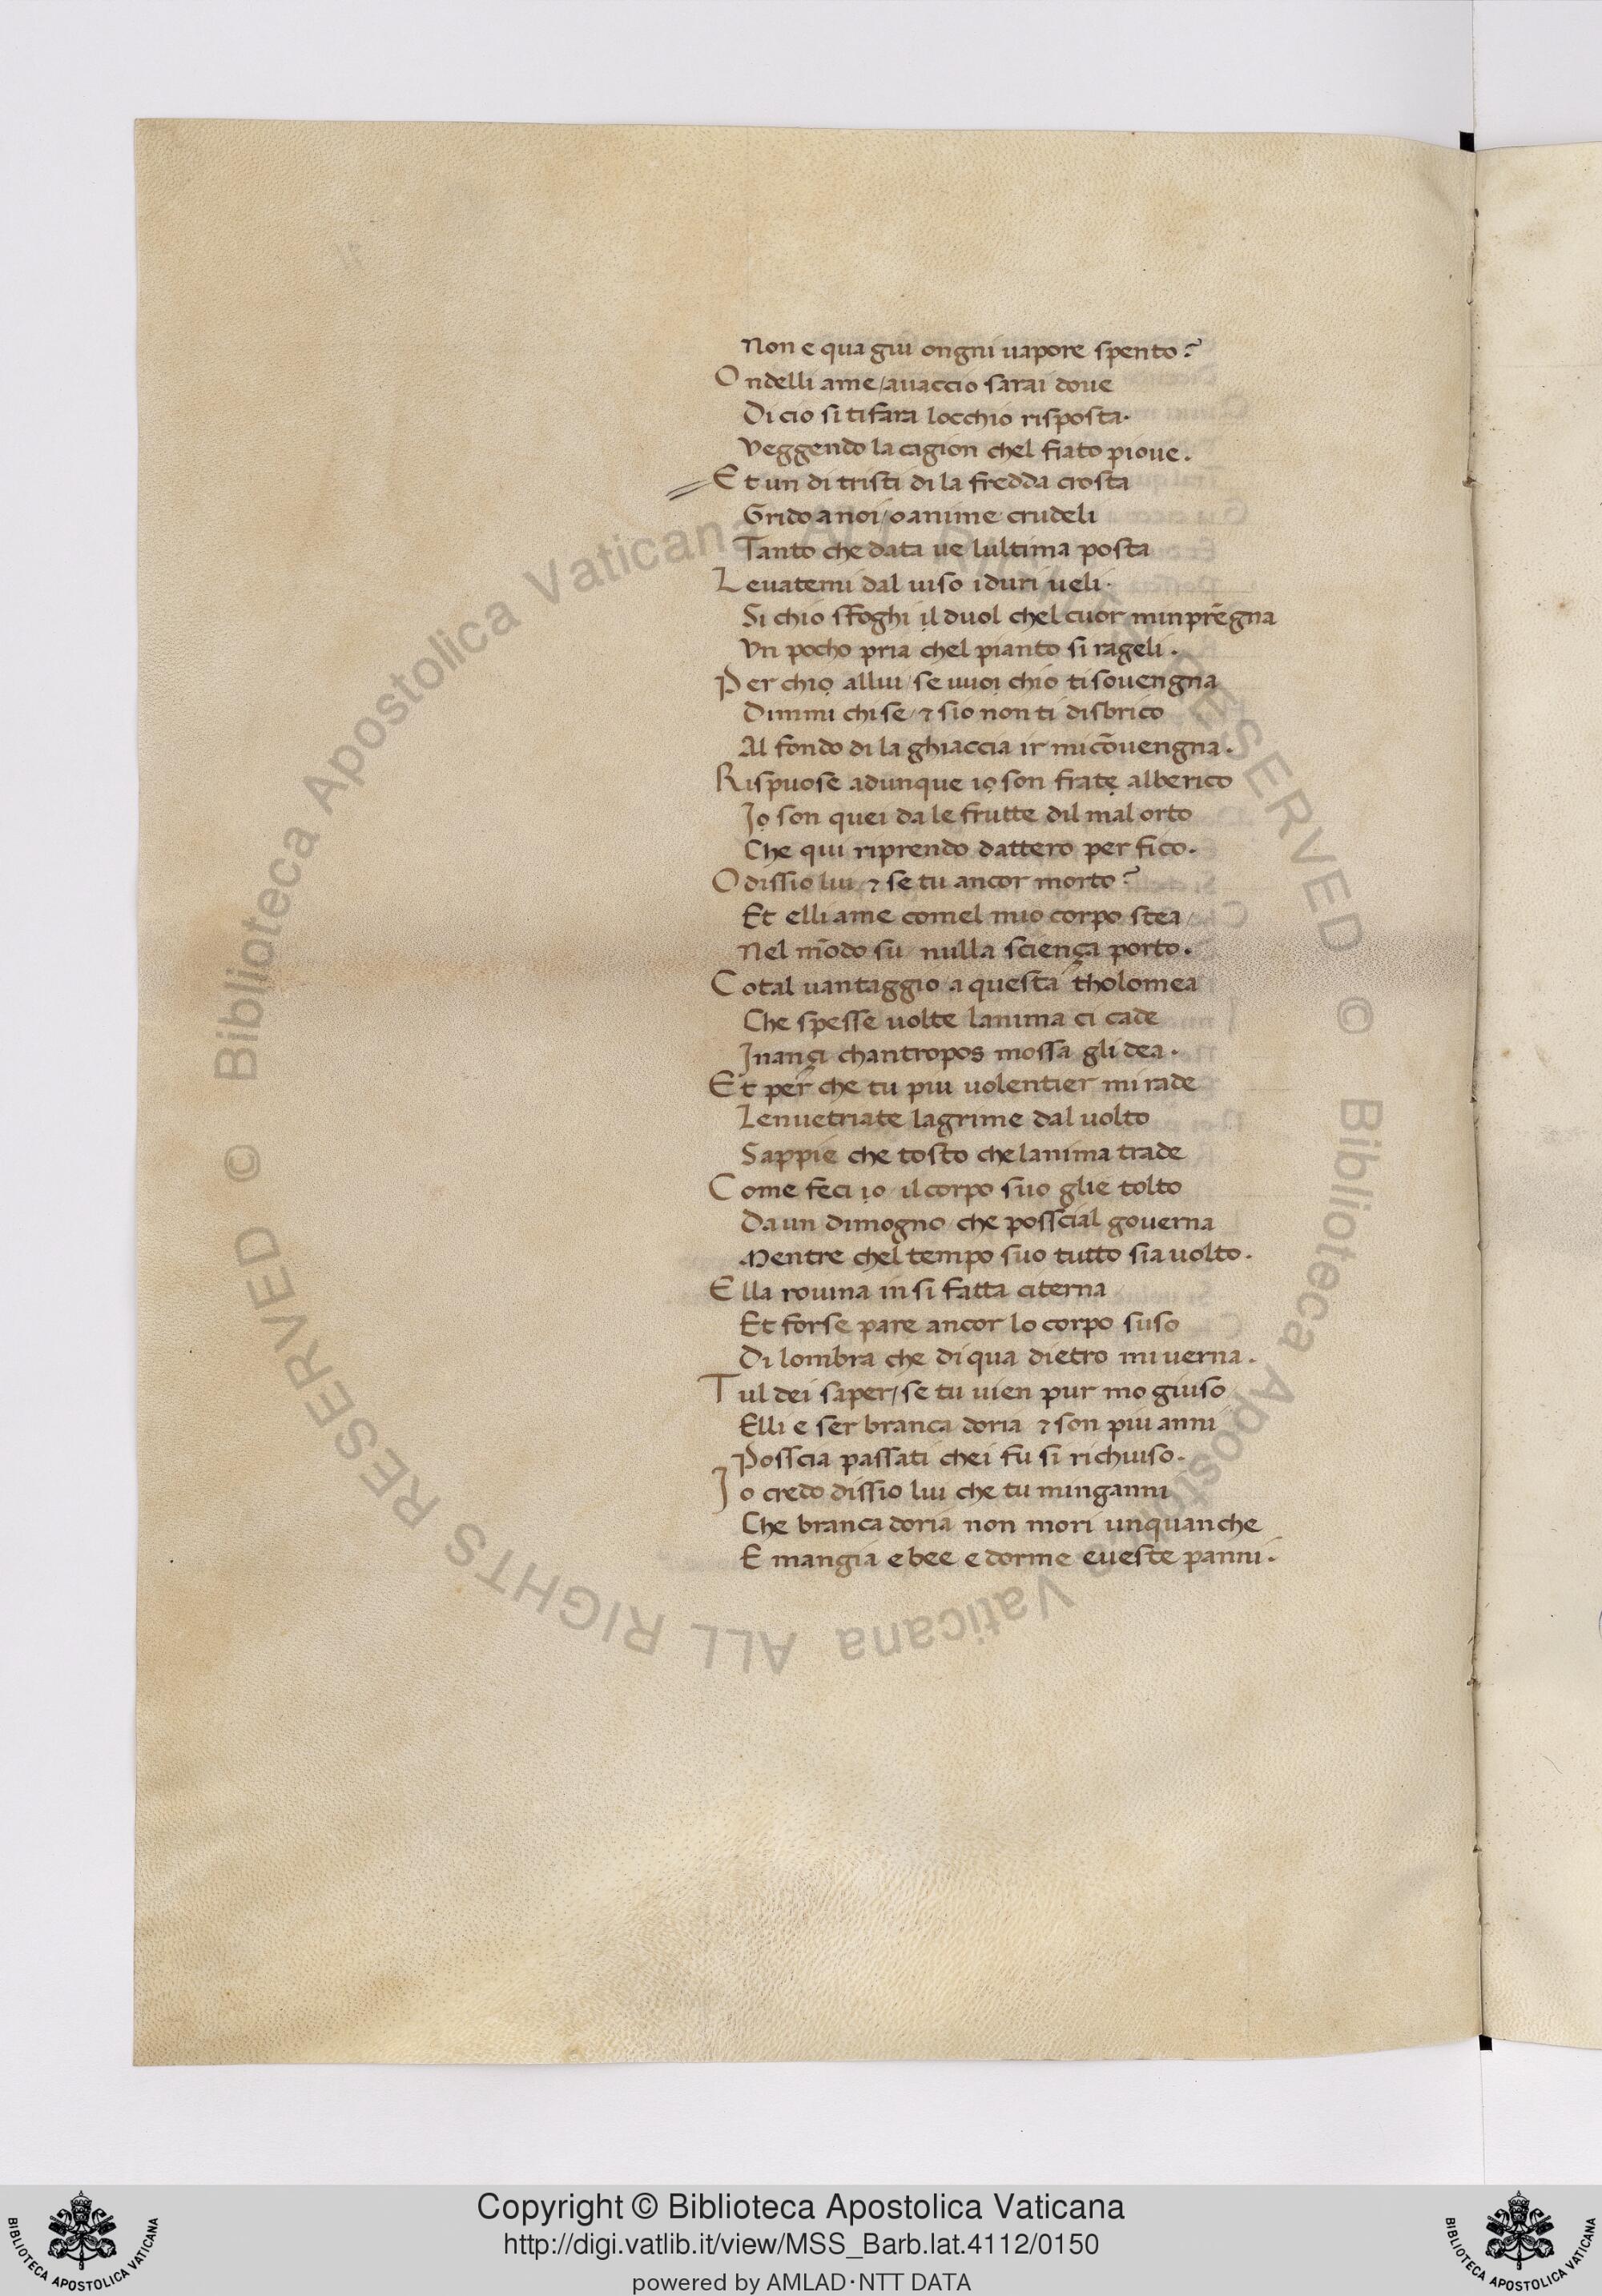 Non e qua giu ongni uapore spento?
Ondelli ame/auaccio sarai doue
Di cio si ti fara locchio risposta.
Veggendo la cagion chel fiato pioue.
Et un di tristi di la fredda crosta
Grido a noi/o anime crudeli
Tanto che data ue lultima posta
Leuatemi dal uiso i duri ueli.
Si chio sfoghi il duol chel cuor minpregna
Vn pocho pria chel pianto si rageli.
Per chio allui/se uuoi chio ti souengna
Dimmi chi se/⁊ sio non ti disbrico
Al fondo di la ghiaccia ir mi cōuengna.
Rispuose adunque iọ son fratẹ alberico
Jọ son quei da le frutte dil mal orto
Che qui riprendo dattero per fico.
O dissio lui/⁊ se tu ancor morto?
Et elli ame comel mio corpo stea/
Nel mōdo su/nulla sciença porto.
Cotal uantaggio a questa tholomea
Che spesse uolte lanima ci cade
Jnançi chantropos mossa gli dea.
Et per che tu piu uolentier mi rade
Lenuetriate lagrime dal uolto
Sappie che tosto che lanima trade
Come feci iọ/il corpo suo glie tolto
Da un dimogno/che posscial gouerna
Mentre chel tempo suo tutto sia uolto.
Ella rouina in si fatta citerna
Et forse pare ancor lo corpo suso
Di lombra che di qua dietro mi uerna.
Tul dei saper/se tu uien pur mo giuso
Elli e ser branca doria ⁊ son piu anni
Posscia passati chei fu si richiuso.
Jo credo dissio lui che tu minganni
Che branca doria non mori unquanche
E mangia e bee e dorme e ueste panni.
© Biblioteca Apostolica Vaticana ALL RIGHTS RESERVED © Biblioteca Apostolica Vaticana ALL RIGHTS RESERVED
Copyright © Biblioteca Apostolica Vaticana
http://digi.vatlib.it/view/MSS_Barb.lat.4112/0150
powered by AMLAD·NTT DATA
BIBLIOTECA APOSTOLICA VATICANA
BIBLIOTECA APOSTOLICA VATICANA